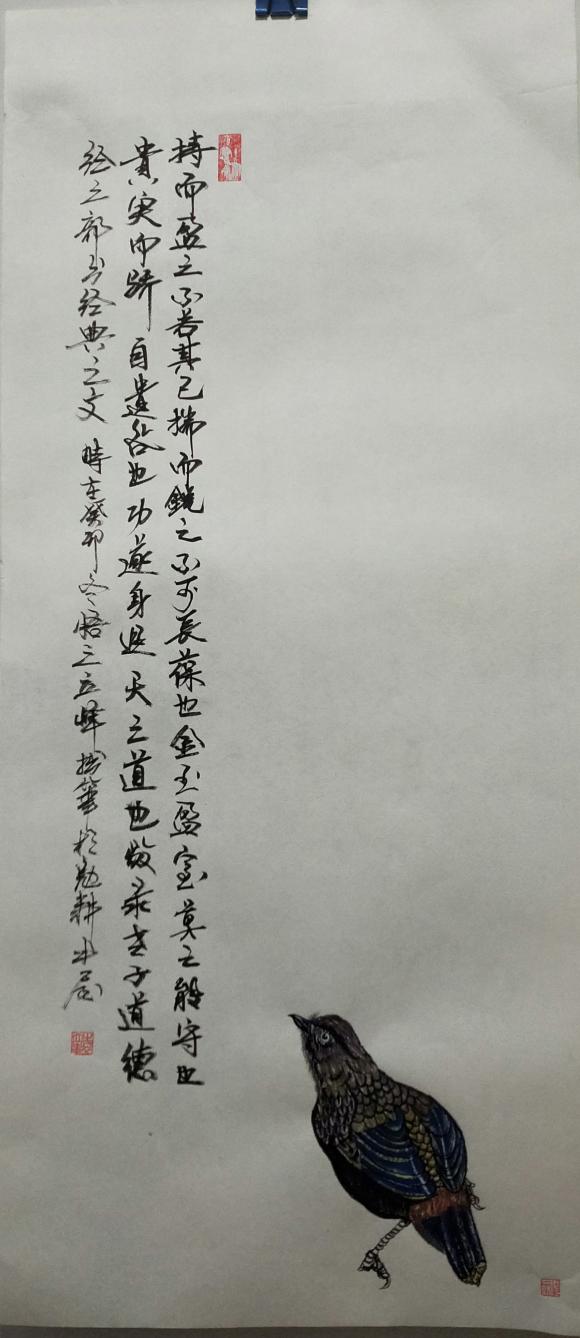 持而盈之不若其已揣而銳之不可長葆也金玉盈室莫之能守也
貴富而驕自遺咎也功遂身退天之道也敬录老子道德
经之部分经典之文時在癸卯冬悟之於勉耕